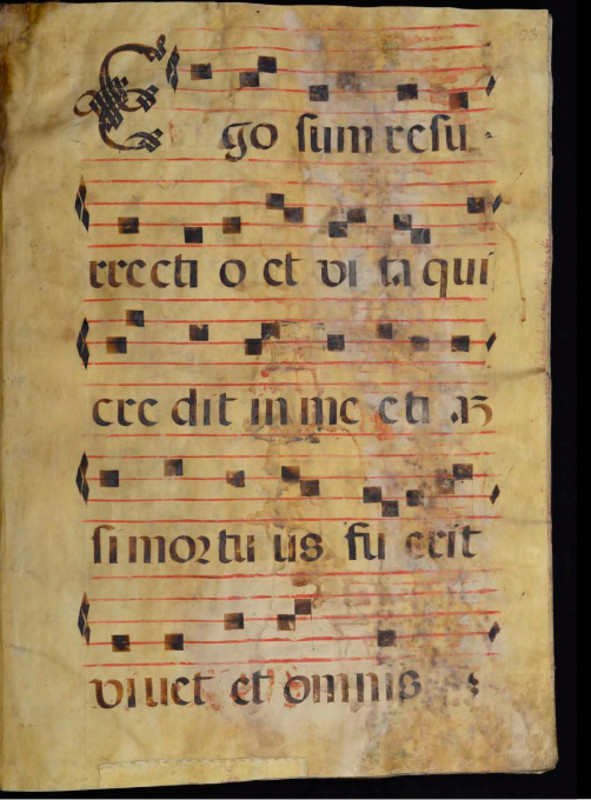 Ego sum resu
rrecti o et vi ta qui
cre dit in me eti
si mortu us fu erit
vi vet et omnis